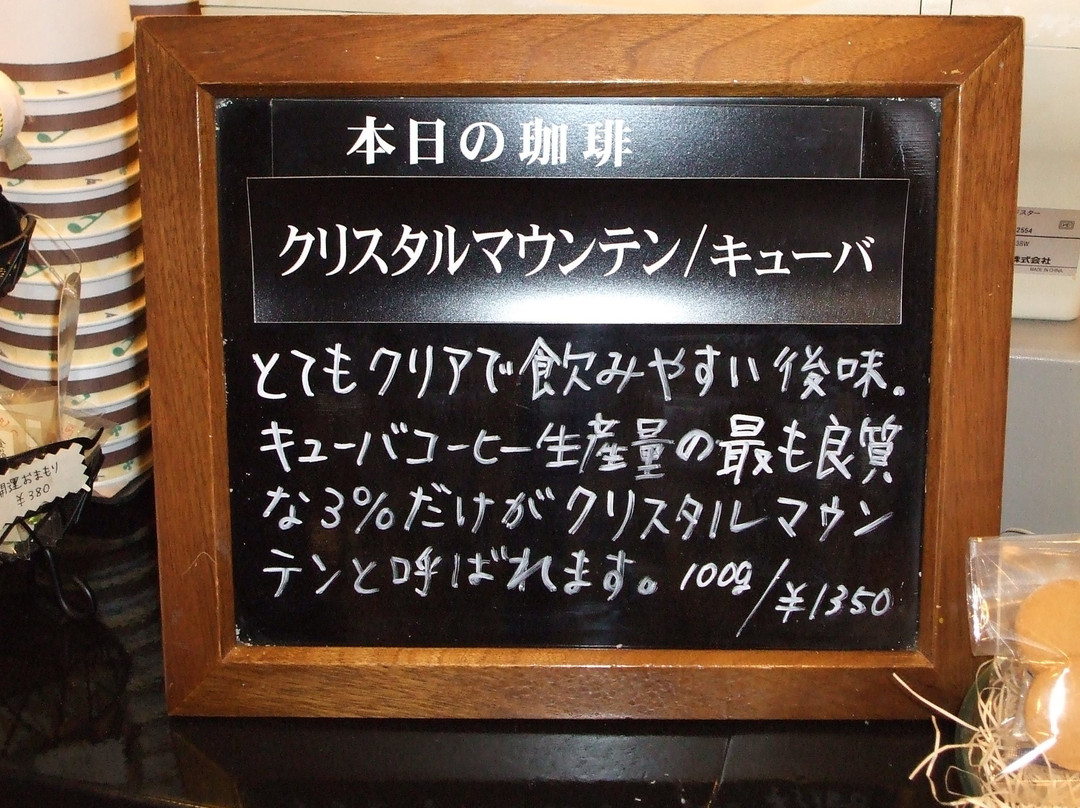 本日の珈琲
クリスタルマウンテン/キューバ
とてもクリアで飲みやすい後味。
キューバコーヒー生産量の最も良質
な3%だけがクリスタルマウン
テンと呼ばれます。100g/¥1350
開運おまもり
¥380
スター
2554
38W
株式会社
MADE IN CHINA